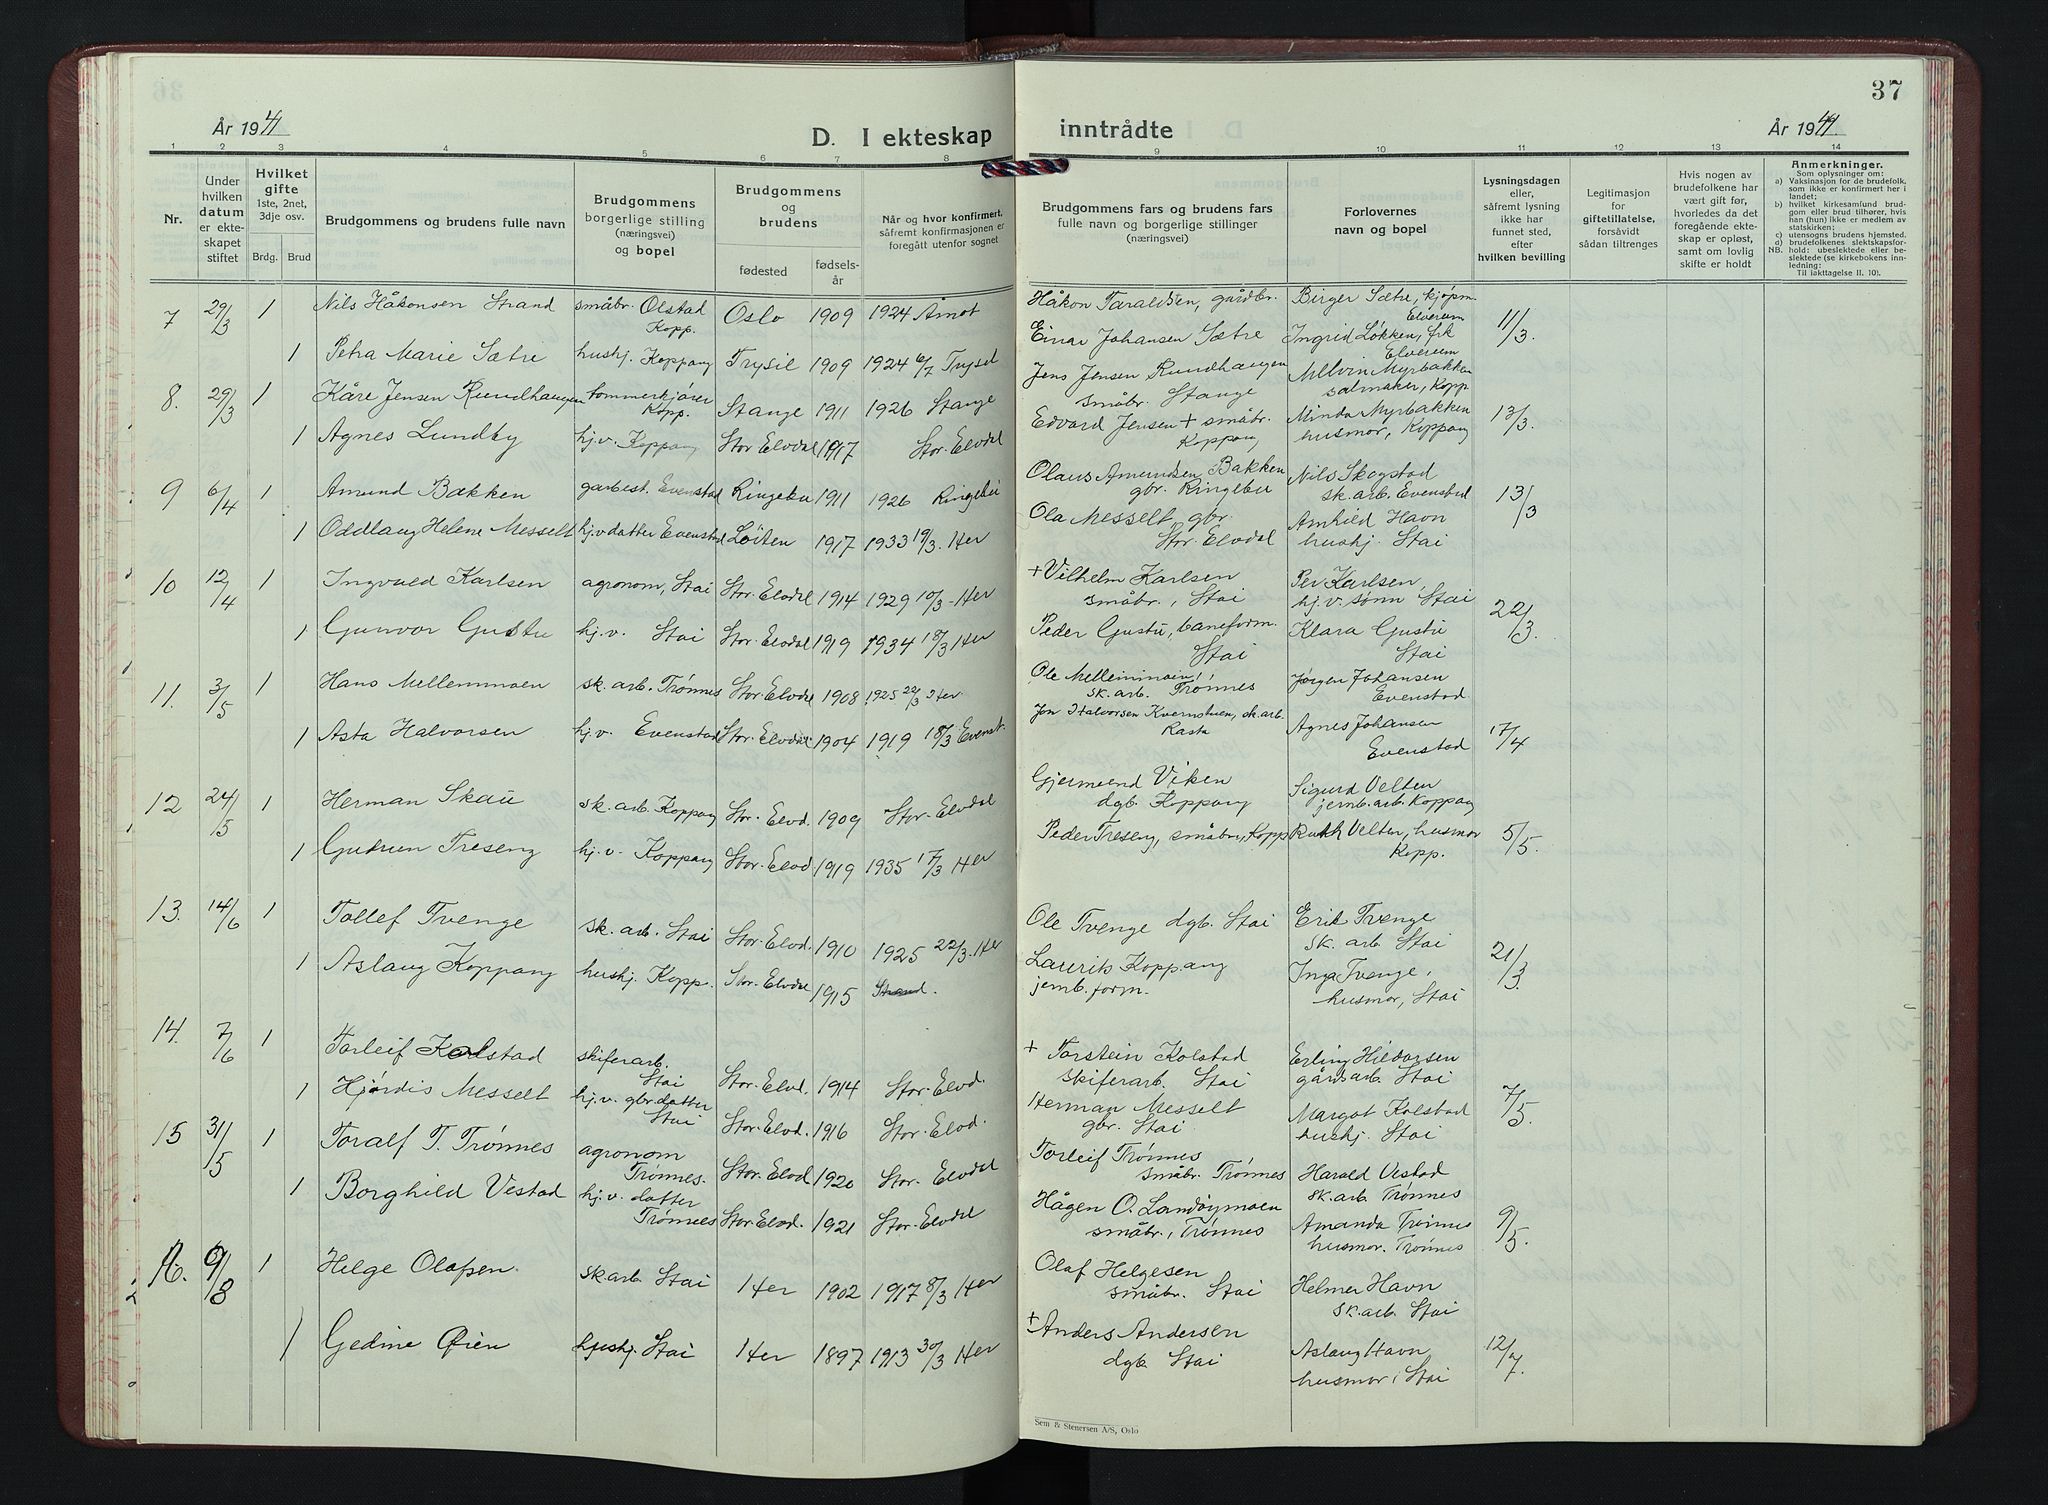 År 1941
D. I ekteskap
1 2 3 4 5 6 7 8
Nr.
Under hvilken datum er ekteskapet stiftet
Hvilket gifte 1ste, 2net, 3dje osv.
Brdg. Brud
Brudgommens og brudens fulle navn
Brudgommens borgerlige stilling (næringsvei) og bopel
Brudgommens og brudens
fødested
fødselsår
Når og hvor konfirmert, såfremt konfirmasjonen er foregått utenfor sognet
7 29/3 1 Nils Håkonsen Strand småbr. Olstad Kopp. Oslo 1909 1924 Åmot
1 Petra Marie Sætre hushj. Koppang Trysil 1909 1924 6/7 Trysil
8. 29/3 1 Kåre Jensen Rundhaugen tømmerkjører Kopp. Stange 1911 1926 Stange
1 Agnes Lundby hj.v. Koppang Stor Elvdal 1917 Stor-Elvdal
9 6/4 1 Amund Bakken garbest. Evenstad Ringebu 1911 1926 Ringebu
1 Oddlaug Helene Messelt hj.v datter Evenstad Löiten 1917 1933 19/3. Her
10 12/4 1 Ingvald Karlsen agronom, Stai Stor-Elvdal 1914 1929 10/3 - Her
1 Gunvor Gustu hj.v. Stai Stor-Elvdal 1919 1934 18/3 Her
11. 3/5 1 Hans Mellemmoen sk.arb. Trønnes Stor-Elvdal 1908 1925 22/3 Her
1 Asta Halvorsen hj.v. Evenstad Stor-Elvdal 1904 1919 18/3 Evenst.
12 24/5 1 Herman Skau sk.arb. Koppang Stor-Elvd. 1909 Stor-Elvdal
1 Gudrun Treseng hj.v. Koppang Stor-Elvd. 1919 1935 17/3 Her
13. 14/6 1 Tollef Tvenge sk. arb. Stai Stor-Elvd. 1910 1925 22/3. Her
1 Aslaug Koppang hushj. Kopp. Stor-Elvdal 1915
14. 7/6 1 Torleif Kolstad skiferarb. Stai Stor-Elvd. 1914 Stor-Elvd.
1 Hjørdis Messelt hj.v. gbr.datter Stai Stor-Elvd. 1916 Stor-Elvd.
15 31/5 1 Toralf T. Trønnes agronom Trønnes. Stor-Elvd 1920 Stor-Elvdal
1 Borghild Vestad hj.v. datter Trønnes Stor-Elvd. 1921 Stor-Elvdal
9/8 1 Helge Olafsen. sk.arb. Stai Her 1902 1917 8/3 Her
1 Gedine Øien hushj. Stai Her 1897 1913 30/3 Her
37
inntrådte
År 1941.
9 10 11 12 13 14
Brudgommens fars og brudens fars fulle navn og borgerlige stillinger (næringsvei)
Forlovernes navn og bopel
Lysningsdagen eller, såfremt lysning ikke har funnet sted, efter hvilken bevilling
Legitimasjon for giftetillatelse, forsåvidt sådan tiltrenges
Hvis nogen av brudefolkene har vært gift før, hvorledes da det foregående ekteskap er opløst, samt om lovlig skifte er holdt
Anmerkninger.
Som oplysninger om:
a) Vaksinasjon for de brudefolk, som ikke er konfirmert her i landet;
b) hvilket kirkesamfund brudgom eller brud tilhører, hvis han (hun) ikke er medlem av statskirken;
c) utensogns brudens hjemsted.
d) brudefolkenes slektskapsforhold: ubeslektede eller beslektede (se kirkebokens innledning:
NB. Til iakttagelse II. 10).
Håkon Taraldsen, gårdbr. Birger Sætre, kjøpm. Elverum 11/3.
Einar Johansen Sætre Ingrid Løkken, frk Elverum
Jens Jensen Rundhaugen småbr. Stange Melvin Myrbakken salmaker, Kopp 13/3.
Edvard Jensen + småbr. Koppang Minda Myrbakken husmor, Koppang
Olaus Amundsen Bakken gbr. Ringebu Nils Skogstad sk.arb. Evenstad 13/3
Ola Messelt, gbr. Stor. Elvdal Arnhild Havn hushj. Stai
+Vilhelm Karlsen småbr., Stai Per Karlsen hj.v. sønn Stai 22/3.
Peder Gustu, baneform. Stai Klara Gustu Stai
Ole Mellemmoen sk.arb. Trønnes Jørgen Johansen Evenstad 17/4
Jon Halvorsen Kvernstuen, sk.arb. Rasta Agnes Johansen Evenstad
Gjermund Viken dgb. Koppang Sigurd Velten jernb.arb. Koppang 5/5.
Peder Treseng, småbr., Kopp Ruth Velten, husmor Kopp.
Ole Tvenge dgb. Stai Erik Tvenge sk. arb. Stai 21/3.
Laurits Koppang jernb.form. Inga Tvenge, husmor, Stai
+ Torstein Kolstad skiferarb. Stai Erling Hildorsen gårdsarb. Stai 7/5.
Herman Messelt gbr. Stai Margot Kolstad hushj. Stai
Torleif Trønnes småbr. Trønnes Harald Vestad sk.arb. Trønnes 9/5.
Hågen O. Landøymoen småbr., Trønnes Amanda Trønnes husmor. Trønnes
Olaf Helgesen småbr. Stai Helmer Havn sk.arb. Stai 12/7.
+Anders Andersen dgb Stai Aslaug Havn husmor, Stai
Sem & Stenersen A/S, Oslo